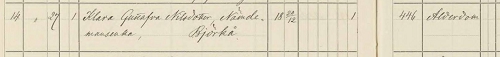 14 " 27 1 Klara Gustafva Nilsdotter, Nämde-
mansenka, Björkå 18 22/12 1 446 Ålderdom